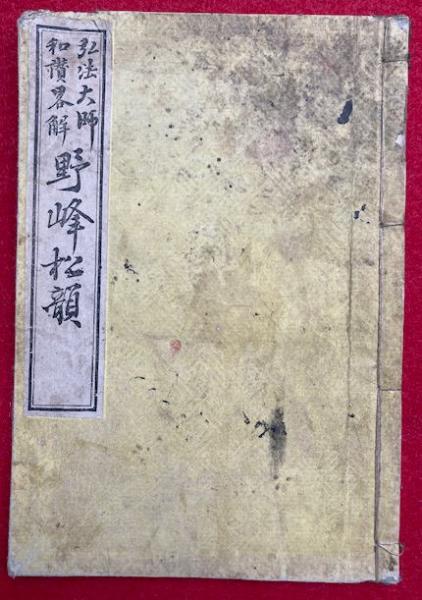 弘法大師
和讃畧解
野峰松韻